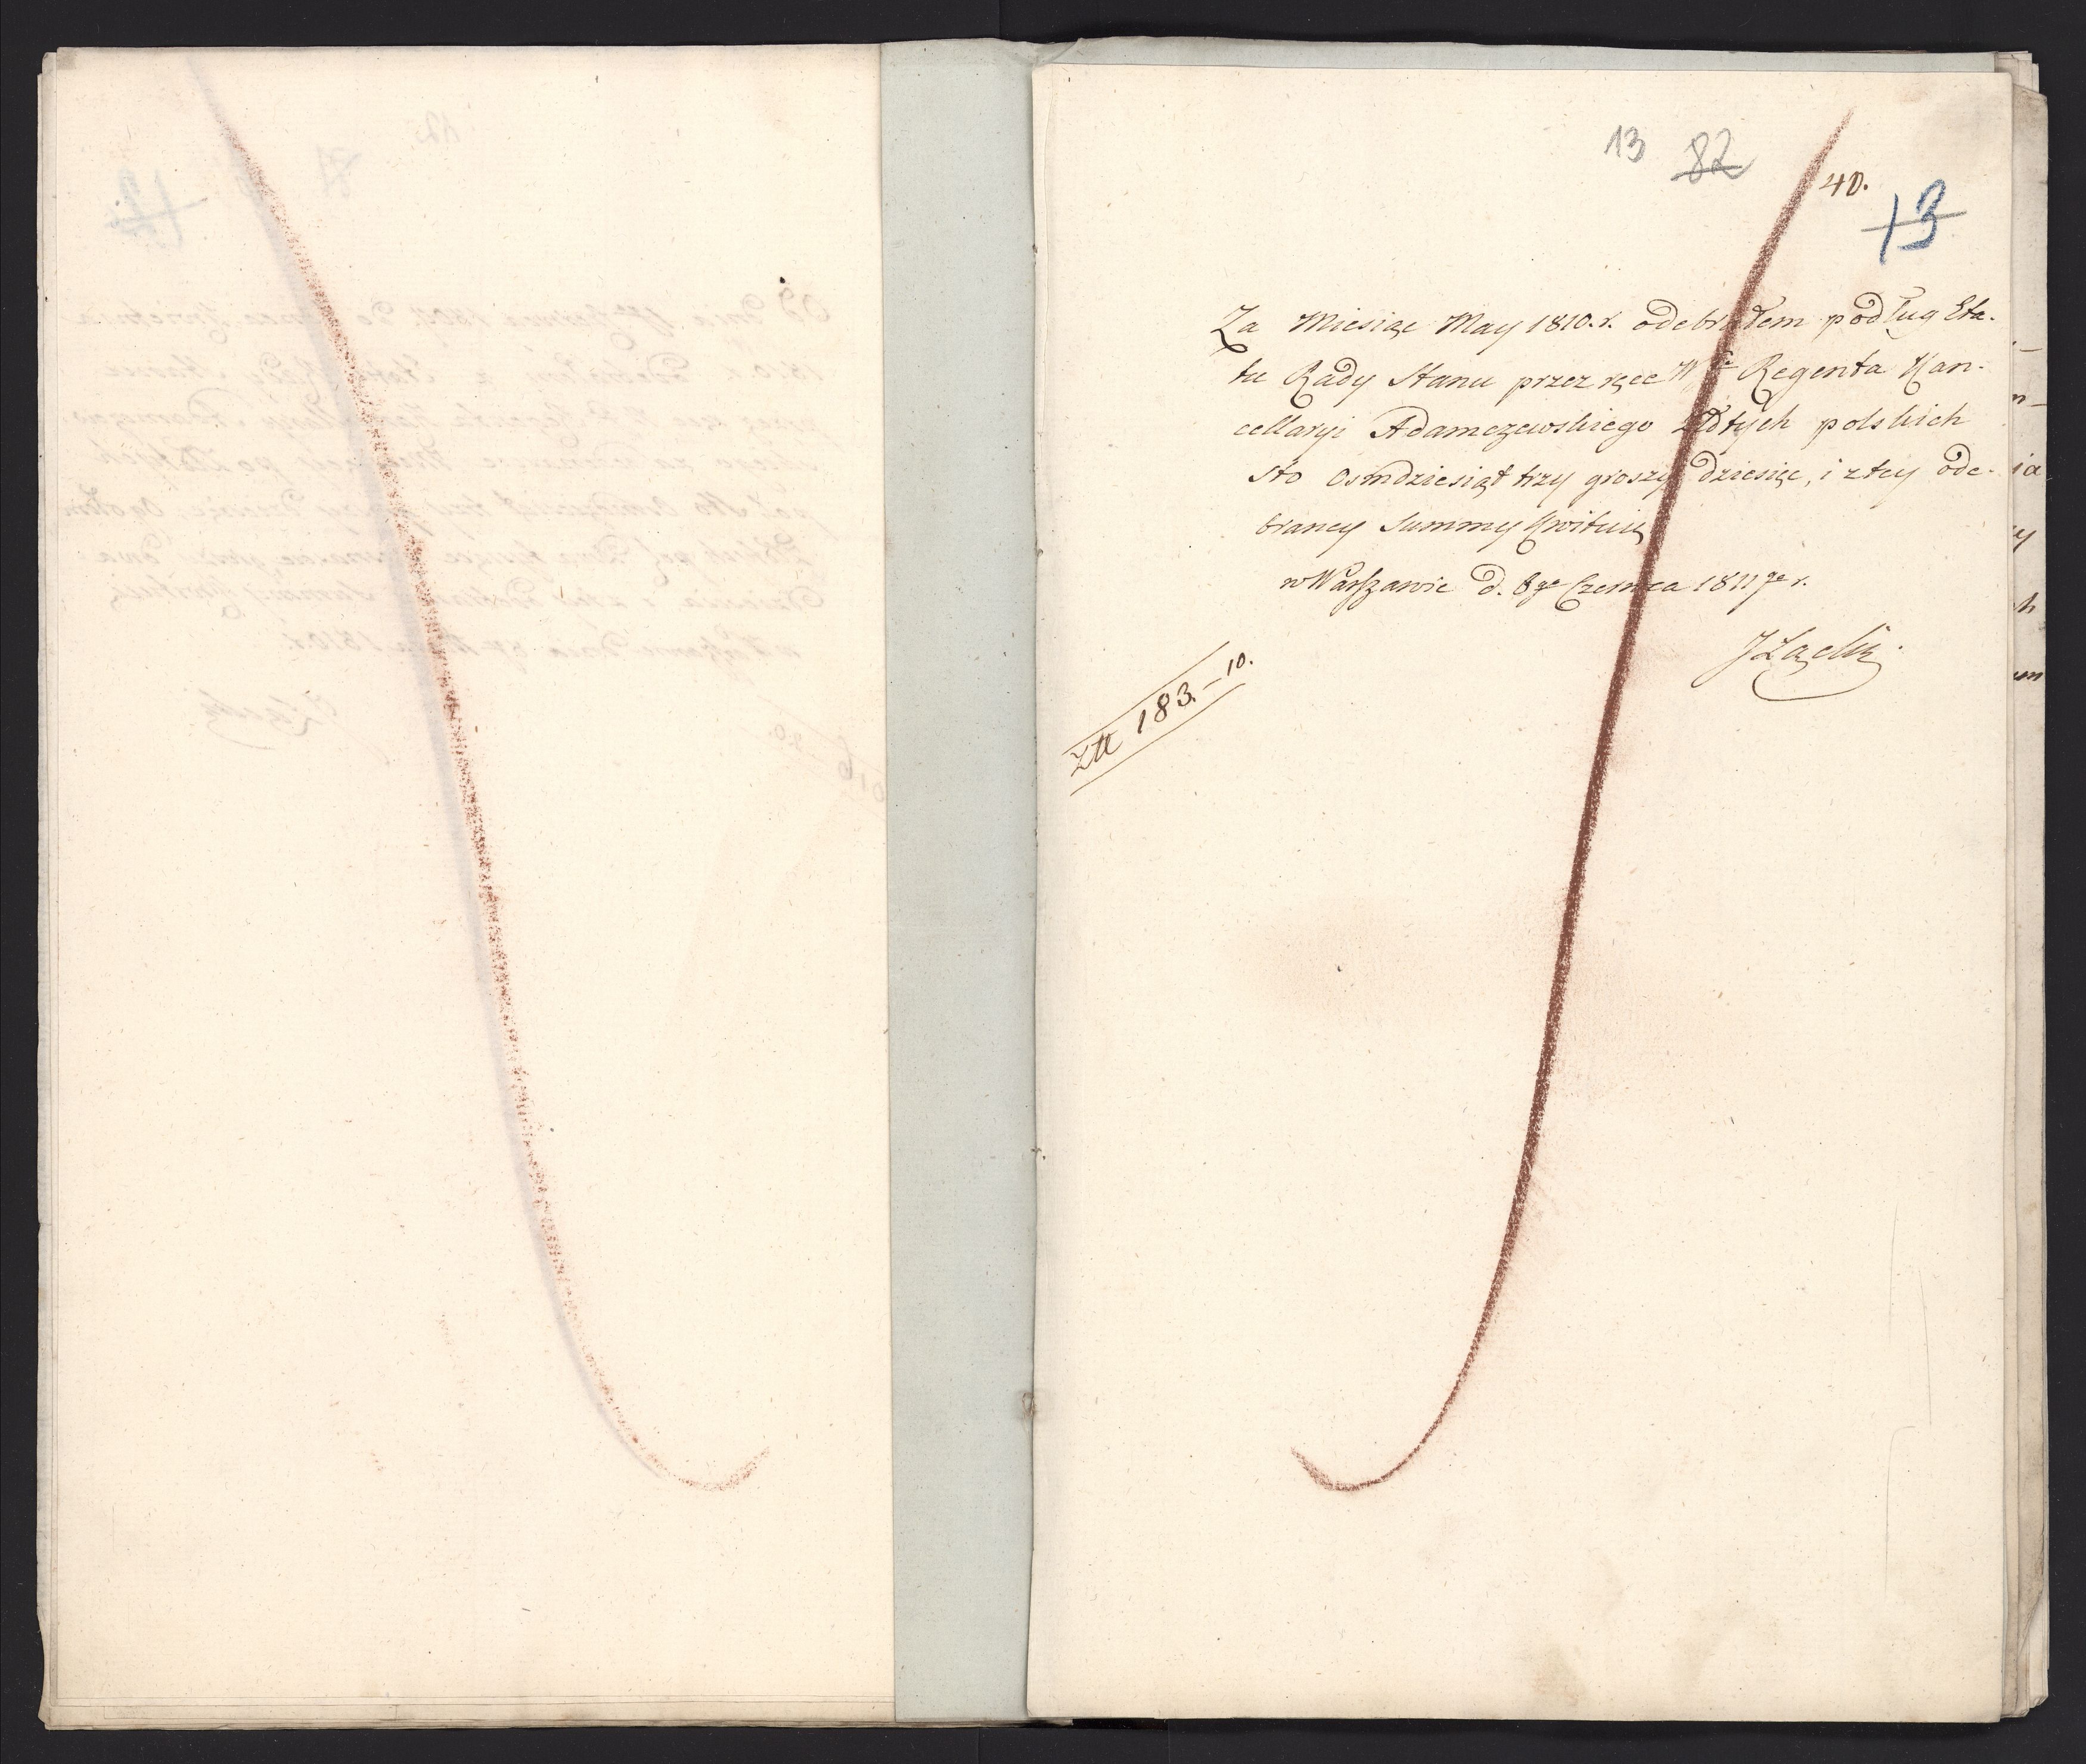 13 82
40.
13
Za Miesiąc May 1810. r. odebrałem podług Eta-
tu Rady Stanu przez ręce Wgo Regenta Kan-
cellaryi Adamczewskiego Złotych polskich
sto osmdziesiąt trzy groszy dziesięć, i z tey ode-
braney Summy Kwituię
w Warszawie d. 8go Czerwca 1811go r.
JŁącki
Złł 183.–10.